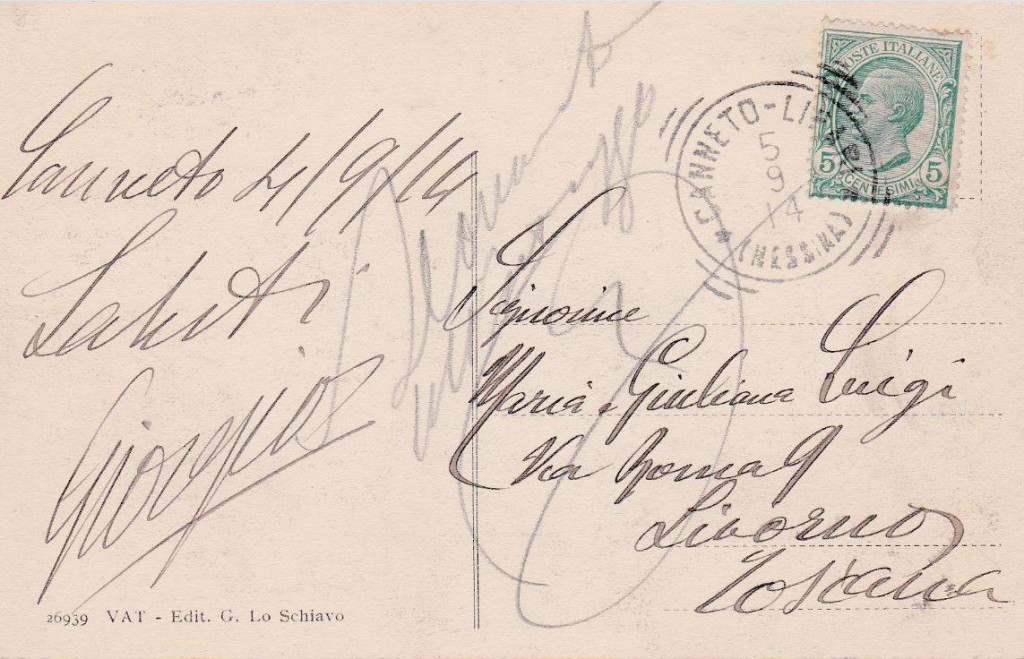 Canneto 4/9/14
Saluti
Giorgio
POSTE ITALIANE
5 5
CENTESIMI
CANNETO-LIPARI
5
9
14
(MESSINA)
Signorine
Maria e Giuliana Luigi
Via Roma 9
Livorno
Toscana
26939 VAT - Edit. G. Lo Schiavo